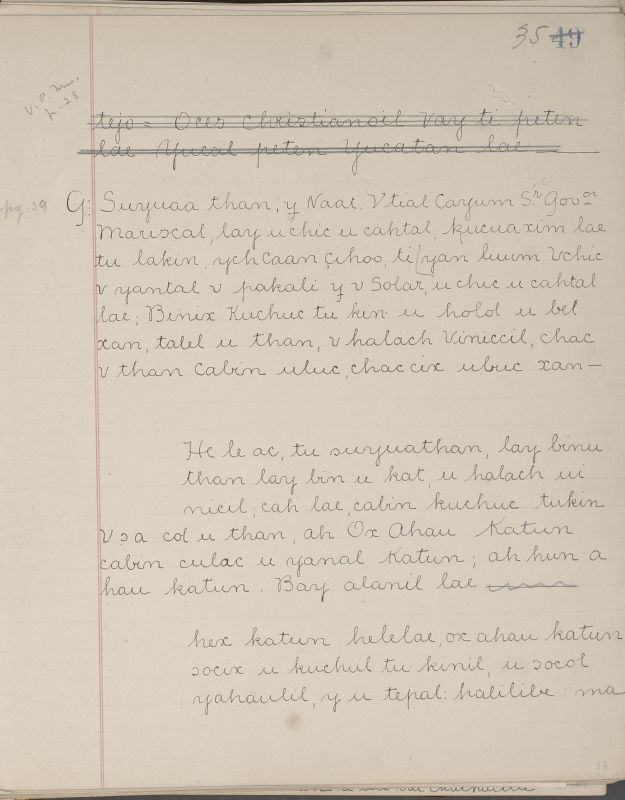 35 49
V. P. M.
p. 28
tejo = Oces Christianoil Vay ti peten
lae Yucal peten Yucatan lae —
pg. 39
G: Suyuaa than, y Naat. Vtial Cayum Sr Govor
Mariscal, lay u chic u cahtal, kucuaxim lae
tu lakin, ych Caan çihoo, ti yan luum Vchic
v yantal v pakali y v Solar, u chic u cahtal
lae; Binix Kuchuc tu kin u hold u bel
xan, talel u than, v halach Viniccil, chac
v than Cabin uluc, chaccix ubuc xan —
He le ac, tu suyuathan, lay binu
than lay bin u kat, u halach ui
nicil; cah lae, cabin kuchuc tukin
Vɔa col u than, ah Ox Ahau Katun
cabin culac u yanal Katun; ah hun a
hau katun. Bay alanil lae
hex katun helelae, ox ahau katun
ɔocix u kuchul tu kinil, u ɔocol
yahaulil, y u tepal: halilibe: ma
18